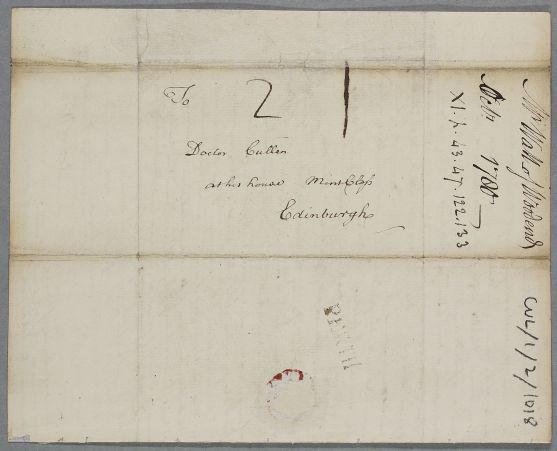 To
2
Doctor Cullen
at his house Mint Closs
Edinburgh
Mr Wall of
Octr 1780
XI. . 43. 47. 122. 133
PERTH
CUL/1/2/1018